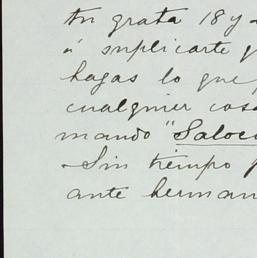 tu grata 18 y
á suplicarte
hagas lo que
cualquier cosa
mando "Saloc
Sin tiempo
ante herman